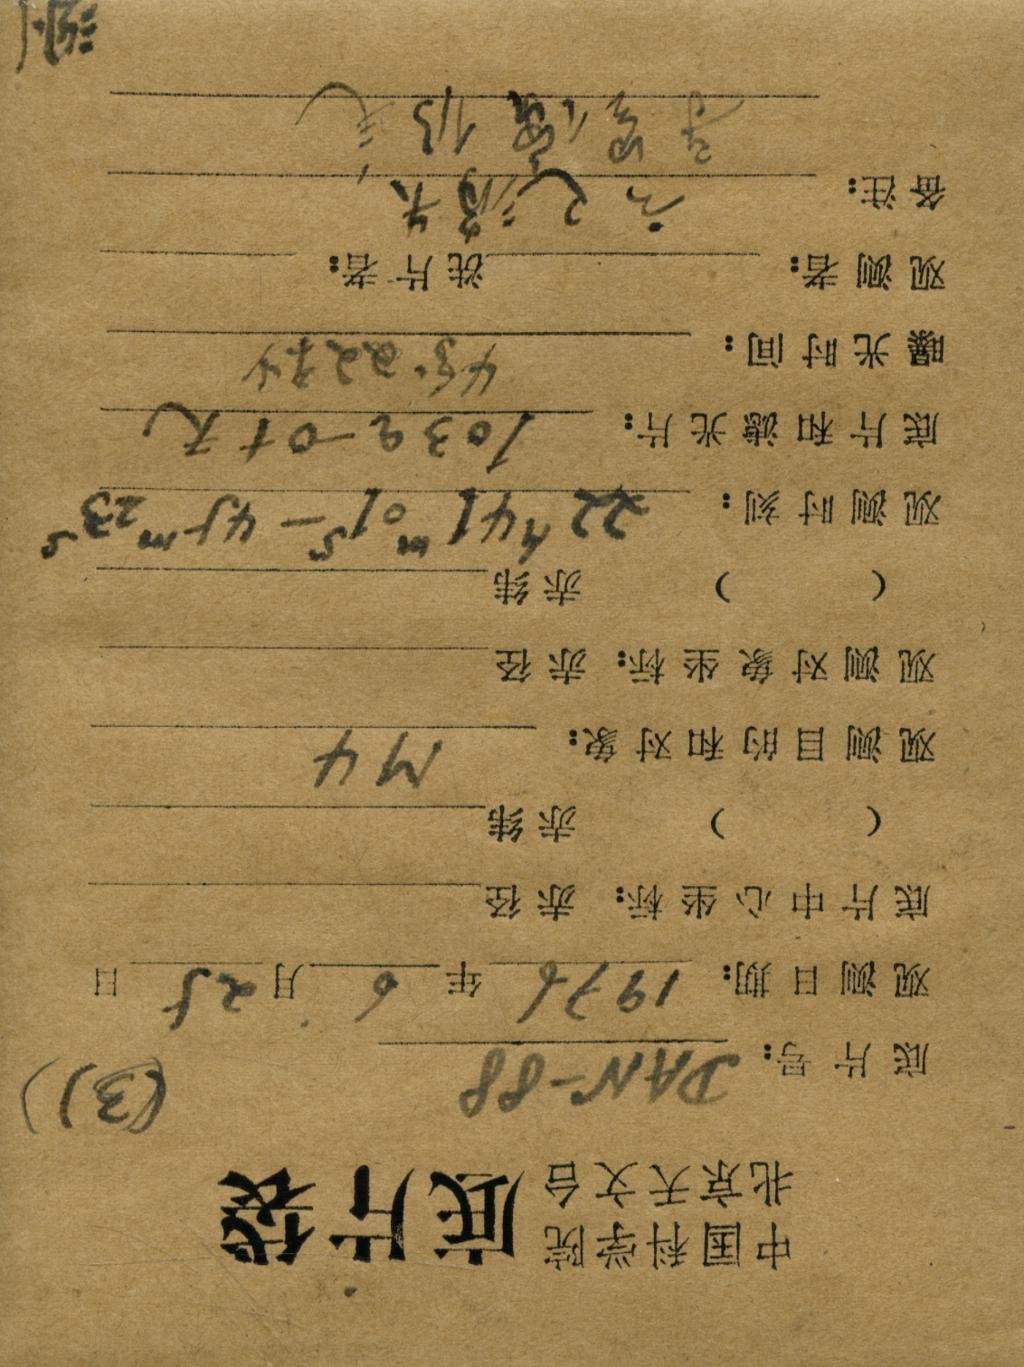 中国科学院
北京天文台
底片袋
(3)
底片号: DAN-88
观测日期: 1976年6月25日
底片中心坐标: 赤径
( ) 赤纬
观测目的和对象: M4
观测对象坐标: 赤径
( ) 赤纬
观测时刻: 22h41m01s-45m23s
底片和滤光片: 103a-O+天
曝光时间:
观测者: 洗片者:
备注:
测